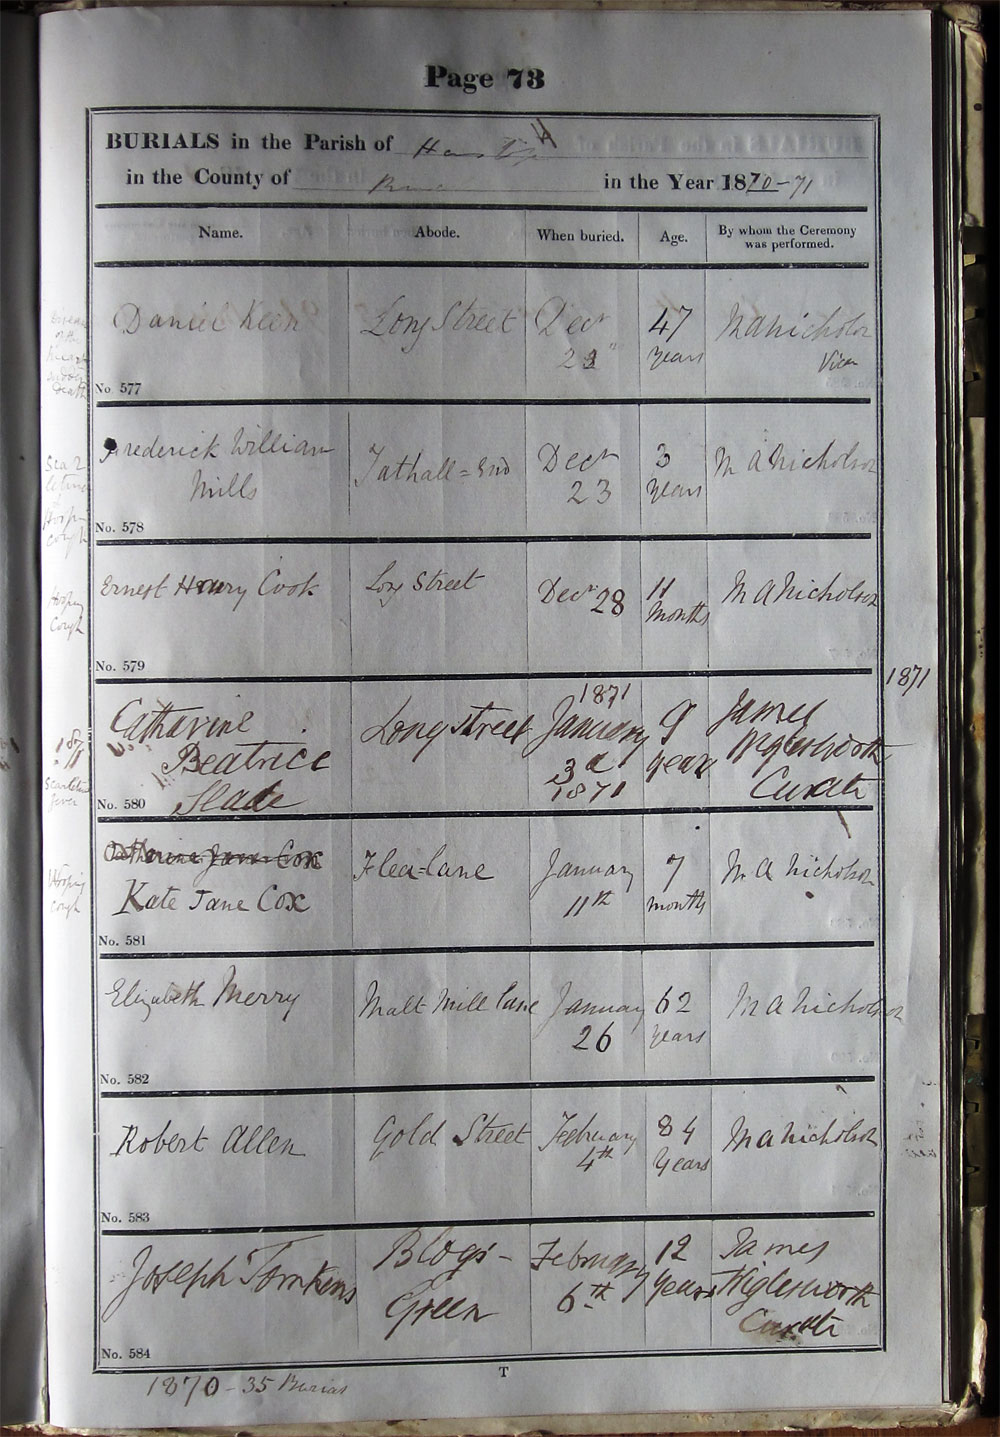 Page 73
BURIALS in the Parish of
in the County of in the Year 1870-71
Name. Abode. When buried. Age. By whom the Ceremony was performed.
Daniel Keen Long Street Decr 47 M A Nicholson
years Vicar
No. 577
Frederick William Tathall=End Decr 3 M A Nicholson
Mills 23 years
No. 578
Hooping
Cough
Ernest Henry Cook Long Street Decr 28 11 M A Nicholson
months
No. 579
1871
1871
Catharine Longstreet January 9 James
Beatrice 3d year Wiglesworth
Slade 1871 Curate
No. 580
1871
Scarlatina
fever
Catherine Jane Cox
Kate Jane Cox Flea=lane January 7 M A Nicholson
11th months
No. 581
Hooping
Cough
Elizabeth Merry Malt Mill lane January 62 M A Nicholson
26 years
No. 582
Robert Allen Gold Street February 84 M A Nicholson
4th Years
No. 583
Joseph Tomkins Blogs- February 12 James
Green 6th years Wiglesworth
Curate
No. 584
T
1870-35 Burials